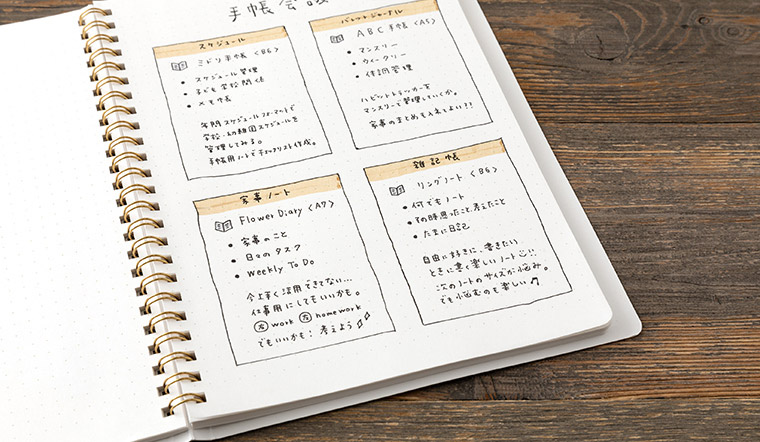 手帳会議
スケジュール
ミドリ手帳〈B6〉
• スケジュール管理
• 子ども学校関係
• メモ帳
年間スケジュールフォーマットで
学校・幼稚園スケジュールを
管理してみる。
手帳用ノートでチェックリスト作成。
バレットジャーナル
ABC手帳〈A5〉
• マンスリー
• ウィークリー
• 体調管理
ハビットトラッカーを
マンスリーで管理していくか。
家事のまとめも入れてよい??
家事ノート
Flower Diary〈A7〉
• 家事のこと
• 日々のタスク
• Weekly To Do
今上手く活用できてない…
仕事用にしてもいいかも。
左 work 右 homework
でもいいかも! 考えよう
雑記帳
リングノート〈B6〉
• 何でもノート
• その時思ったこと、考えたこと
• たまに日記
自由に好きに、書きたい
ときに書く楽しいノート
次のノートのサイズが悩み。
でも悩むのも楽しい♪